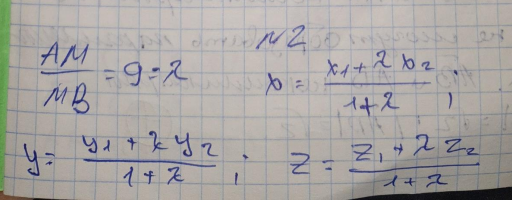 N2
AM/MB = 9 = λ x = (x₁ + λ x₂)/(1 + λ) ;
y = (y₁ + λ y₂)/(1 + λ) ; z = (z₁ + λ z₂)/(1 + λ)